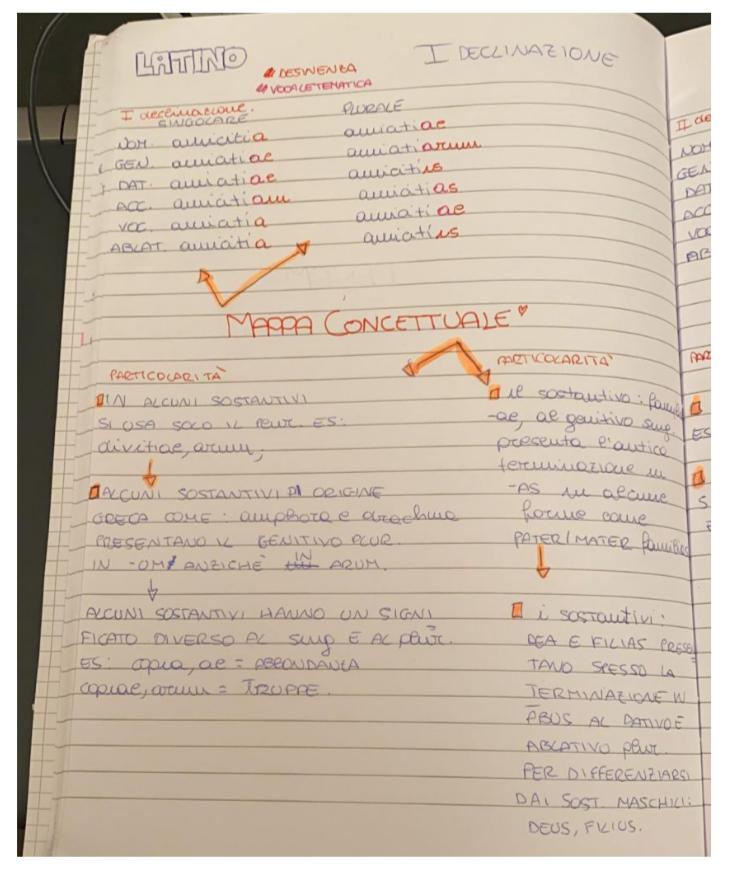 LATINO
I DECLINAZIONE
DESINENZA
VOCALE TEMATICA
I declinazione.
SINGOLARE
PLURALE
NOM. amicitia
amicitiae
GEN. amicitiae
amicitiarum
DAT. amicitiae
amicitiis
ACC. amicitiam
amicitias
VOC. amicitia
amicitiae
ABLAT. amicitia
amicitiis
MAPPA CONCETTUALE
PARTICOLARITÀ
IN ALCUNI SOSTANTIVI
SI USA SOLO IL PLUR. ES:
divitiae, arum;
ALCUNI SOSTANTIVI DI ORIGINE
GRECA COME: amphora e drachma
PRESENTANO IL GENITIVO PLUR.
IN -OM ANZICHÈ IN ARUM.
ALCUNI SOSTANTIVI HANNO UN SIGNI
FICATO DIVERSO AL sing E AL plur.
ES: copia, ae = ABBONDANZA
copiae, arum = TRUPPE.
PARTICOLARITÀ
il sostantivo:
-ae, al genitivo sing
presenta l'antica
terminazione in
-AS in alcune
forme come
PATER/MATER
i sostantivi:
DEA E FILIAS PRESE
TANO SPESSO LA
TERMINAZIONE IN
ABUS AL DATIVO E
ABLATIVO plur.
PER DIFFERENZIARSI
DAI SOST. MASCHILI:
DEUS, FILIUS.
II de
NOM
GEN
DAT
ACC
VOC
AB
PAR
ES
S